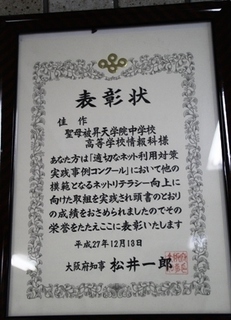 表彰状
佳作
聖母被昇天学院中学校
高等学校情報科様
あなた方は「適切なネット利用対策
実践事例コンクール」において他の
模範となるネットリテラシー向上に
向けた取組を実践され頭書のとおり
の成績をおさめられましたのでその
栄誉をたたえここに表彰いたします
平成27年12月18日
大阪府知事 松井一郎